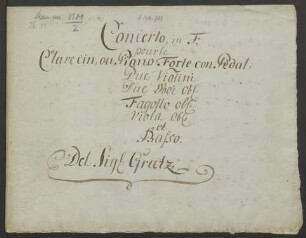 Concerto, in F.
pour le
Clavecin, ou Piano Forte con Pedal.
Due Violini
Due Oboi obl.
Fagotto obl.
Viola obl.
et
Basso.
Del Sigl Gratz